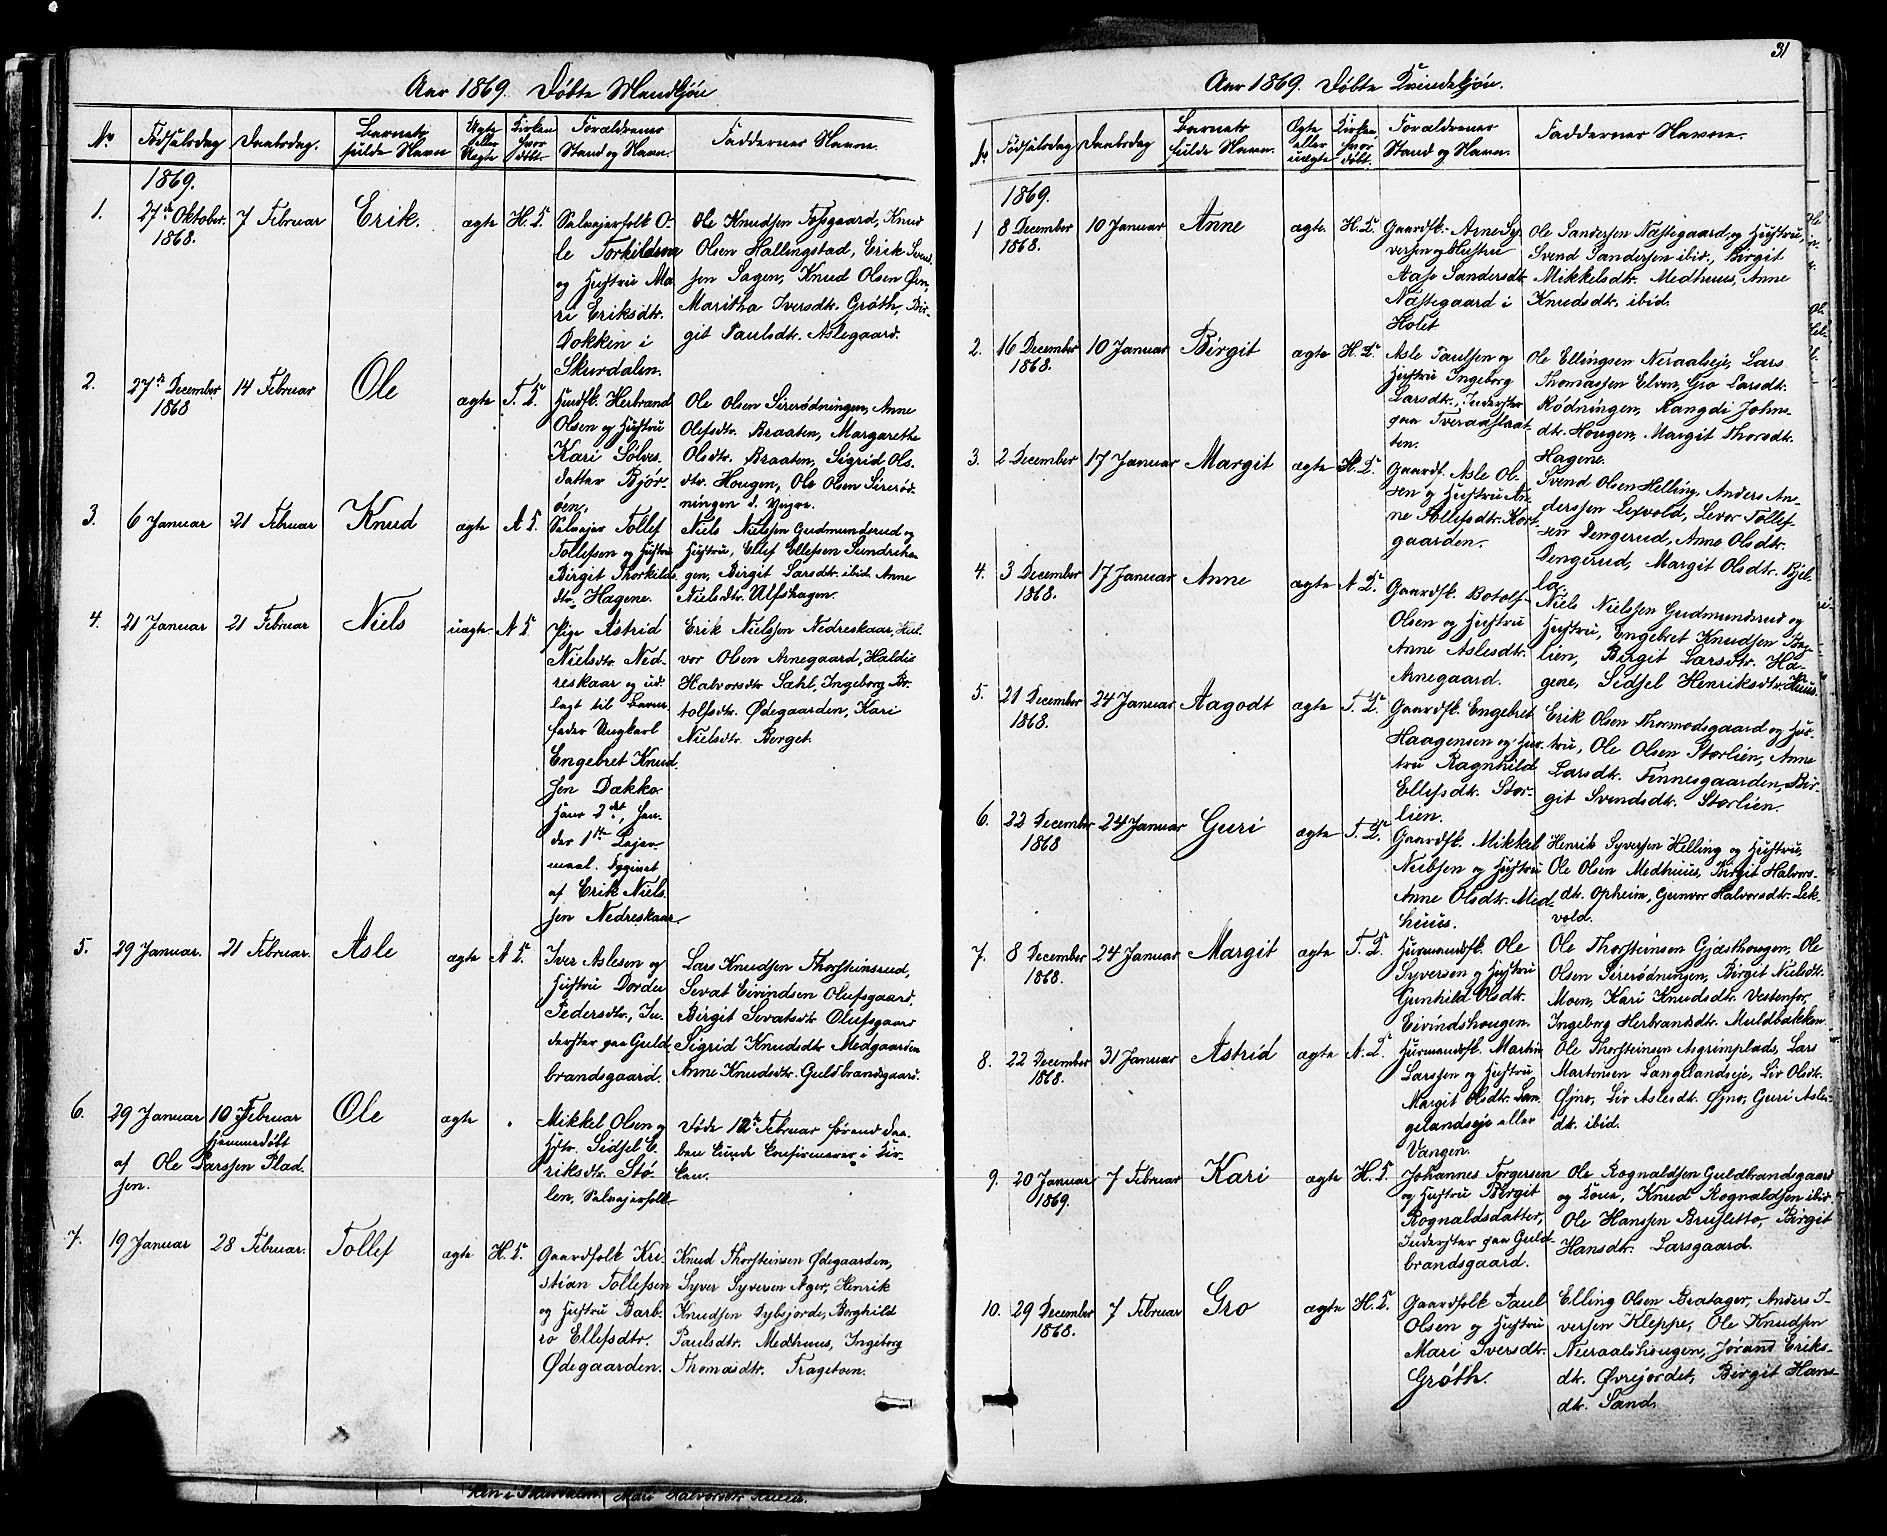 Aar 1869. Døbte Mandkjøn
No
Fødselsdag
Daabsdag.
Barnets fulde Navn
Ægte eller Uægte
Kirken hvor døbt.
Forældrenes Stand og Navn.
Faddernes Navne.
1869.
1.
27de Oktober
1868.
7 Februar
Erik.
ægte
H. K.
Selveierfolk O-
le Torkildsen
og Hustru Ma
ri Eriksdtr.
Dokken i
Skurdalen.
Ole Knudsen Tofsgaard, Knud
Olsen Hallingstad, Erik Svend
sen Sagen, Knud Olsen Øen,
Maritha Iversdtr. Grøth, Bir-
git Paulsdtr. Aslegaard.
2.
27de December
1868
14 Februar
Ole
ægte
T. K.
Husfk. Herbrand
Olsen og Hustru
Kari Sølves
datter Bjør-
øen.
Ole Olsen Sirerødningen, Anne
Olefsdtr. Braaten, Margarethe
Olsdtr. Braaten, Sigrid Ols
dtr. Hougen, Ole Olsen Sirerød
ningen d. yngre.
3.
6 Januar
21 Februar
Knud
ægte
A K.
Selveier Tollef
Tollefsen og Hustru
Birgit Thorkilds
dtr. Hagene.
Niels Nielsen Gudmundsrud og
Hustru, Ellef Ellefsen Sundreha
gen, Birgit Larsdtr. ibid. Anne
Nielsdtr. Ulfshagen.
4.
21 Januar
21 Februar
Niels
uægte
A K.
Pige Astrid
Nielsdtr. Ned-
reskaar og ud-
lagt til Barne
fader Ungkarl
Engebret Knud
sen Dækko
Hans 2det, hen-
des 1ste Leier
maal. Opgivet
af Erik Niels
sen Nedreskaar
Erik Nielssen Nedreskaar, Hal-
vor Olsen Arnegaard, Haldis
Halvorsdtr. Sæhl, Ingeborg Bo-
tolfsdtr. Ødegaarden, Kari
Nielsdtr. Berget.
5.
29 Januar.
21 Februar.
Asle
ægte
A K.
Iver Aslesen og
Hustru Dordei
Pedersdtr., In-
derster paa Guld
brandsgaard.
Lars Knudsen Thorsteinsrud,
Sevat Eivindsen Olufsgaard,
Birgit Sevatsdtr. Olufsgaard
Sigrid Knudsdtr Medgaarden
Anne Knudsdtr. Guldbrandsgaard.
6.
29 Januar
10 Februar
hjemmedøbt
af Ole Larssen Plad
sen.
Ole
ægte
Mikkel Olsen og
Hstr. Sidsel E-
riksdtr. Stø-
len, Selveierfolk
Døde 12te Februar førend Daa-
ben kunde Confirmeres i Kir-
ken.
7.
19 Januar
28 Februar.
Tollef
ægte
H. K.
Gaardfolk Kri-
stian Tollefsen
og Hustru Barb-
ro Ellefsdtr.
Ødegaarden.
Knud Thorsteinsen Ødegaarden,
Syver Syversen Ager, Henrik
Knudsen Dybsjorde, Borghild
Paulsdtr. Medhuus, Ingeborg
Thomasdtr. Fragetoen.
ken i Skurdalen. Mari Halvorsdtr.
31
Aar 1869. Døbte Kvindekjøn.
No
Fødselsdag
Daabsdag
Barnets fulde Navn.
Ægte eller uægte
Kirken, hvor døbt.
Forældrenes Stand og Navn.
Faddernes Navne.
1869.
1
8 December
1868.
10 Januar
Anne
ægte.
H. K.
Gaardfk. Arne Sy-
versen og Hustru
Aase Sandersdtr.
Næstegaard i
Holet
Ole Sandersen Næstegaard og Hustru,
Svend Sandersen ibid., Birgit
Mikkelsdtr. Medhuus, Anne
Knudsdtr. ibid.
2.
16 December
1868.
10 Januar
Birgit
ægte
H. K.
Asle Paulsen og
Hustru Ingeborg
Larsdtr., Inderster
paa Tveraaslaat-
ten.
Ole Ellingsen Neraalseje, Lars
Thomassen Elven, Gro Larsdtr.
Rødningen, Rangdi Johns-
dtr. Hougen, Margit Thorsdtr.
Hagene.
3.
2 December
17 Januar
Margit
ægte
H. K.
Gaardf. Asle Ol-
sen og Hustru An-
ne Tollefsdtr. Kort-
gaarden.
Svend Olsen Helling, Anders An-
derssen Lexvold, Levor Tollef-
sen Dengerud, Anne Olsdtr.
Dengerud, Margit Olsdtr. Bjel-
la.
4.
3 December
1868.
17 Januar
Anne
ægte
A K.
Gaardfk. Botolf
Olsen og Hustru
Anne Aslesdtr.
Arnegaard.
Niels Nielssen Gudmundsrud og
Hustru, Engebret Knudsen Ber-
lien, Birgit Larsdtr. Ha-
gene, Sidsel Henriksdtr. Huus.
5.
21 December
1868.
24 Januar
Aagodt
ægte
T. K.
Gaardfk. Engebret
Haagensen og Hus-
tru Ragnhild
Ellefsdtr. Stor-
lien.
Erik Olsen Thormodsgaard og Hus-
tru, Ole Olsen Storlien, Anne
Larsdtr. Finnesgaarden, Bir-
git Svendsdtr. Storlien.
6.
22 December
1868
24 Januar
Guri
ægte
T. K.
Gaardfk. Mikkel
Neibsen og Hustru
Anne Olsdtr. Med-
huus.
Henrik Syversen Helling og Hustru,
Ole Olsen Medhuus, Birgit Halvors-
dtr. Opheim, Gunvor Halvorsdtr. Lek-
vold.
7.
8 December
1868.
24 Januar
Margit
ægte
T. K.
Husmandsfk. Ole
Syversen og Hustru
Gunhild Olsdtr.
Eivindshougen.
Ole Thorsteinsen Gjæsthougen, Ole
Olsen Sirerødningen, Birgit Nielsdtr.
Moen, Kari Knudsdtr. Vestenfor,
Ingeborg Herbrandsdtr. Muldbakken.
8.
22 December
1868.
31 Januar
Astrid
ægte
A. K.
Husmandsfk. Martin
Larssen og Hustru
Margit Olsdtr. Lan-
gelandseje eller
Vangen.
Ole Thorsteinsen Asgrimplads, Lars
Martensen Langelandseje, Liv Olsdtr.
Øjno, Liv Aslesdtr. Øjno, Guri Asles-
dtr. ibid.
9.
20 Januar
1869.
7 Februar
Kari
ægte
H. K.
Johannes Torgersen
og Hustru Birgit
Rognaldsdatter,
Inderster paa Guld-
brandsgaard.
Ole Rognaldsen Guldbrandsgaard
og Kone, Knud Rognaldsen ibid.
Ole Hanssen Brusletto, Birgit
Hansdtr. Larsgaard.
10.
29 December
1868.
7 Februar
Gro
ægte
H. K.
Gaardfolk Paul
Olsen og Hustru
Mari Iversdtr.
Grøth.
Elling Olsen Bratager, Anders I-
versen Kleppe, Ole Knudsen
Neraalshougen, Jørand Eriks-
dtr. Øvrejordet, Birgit Hans-
dtr. Sand.